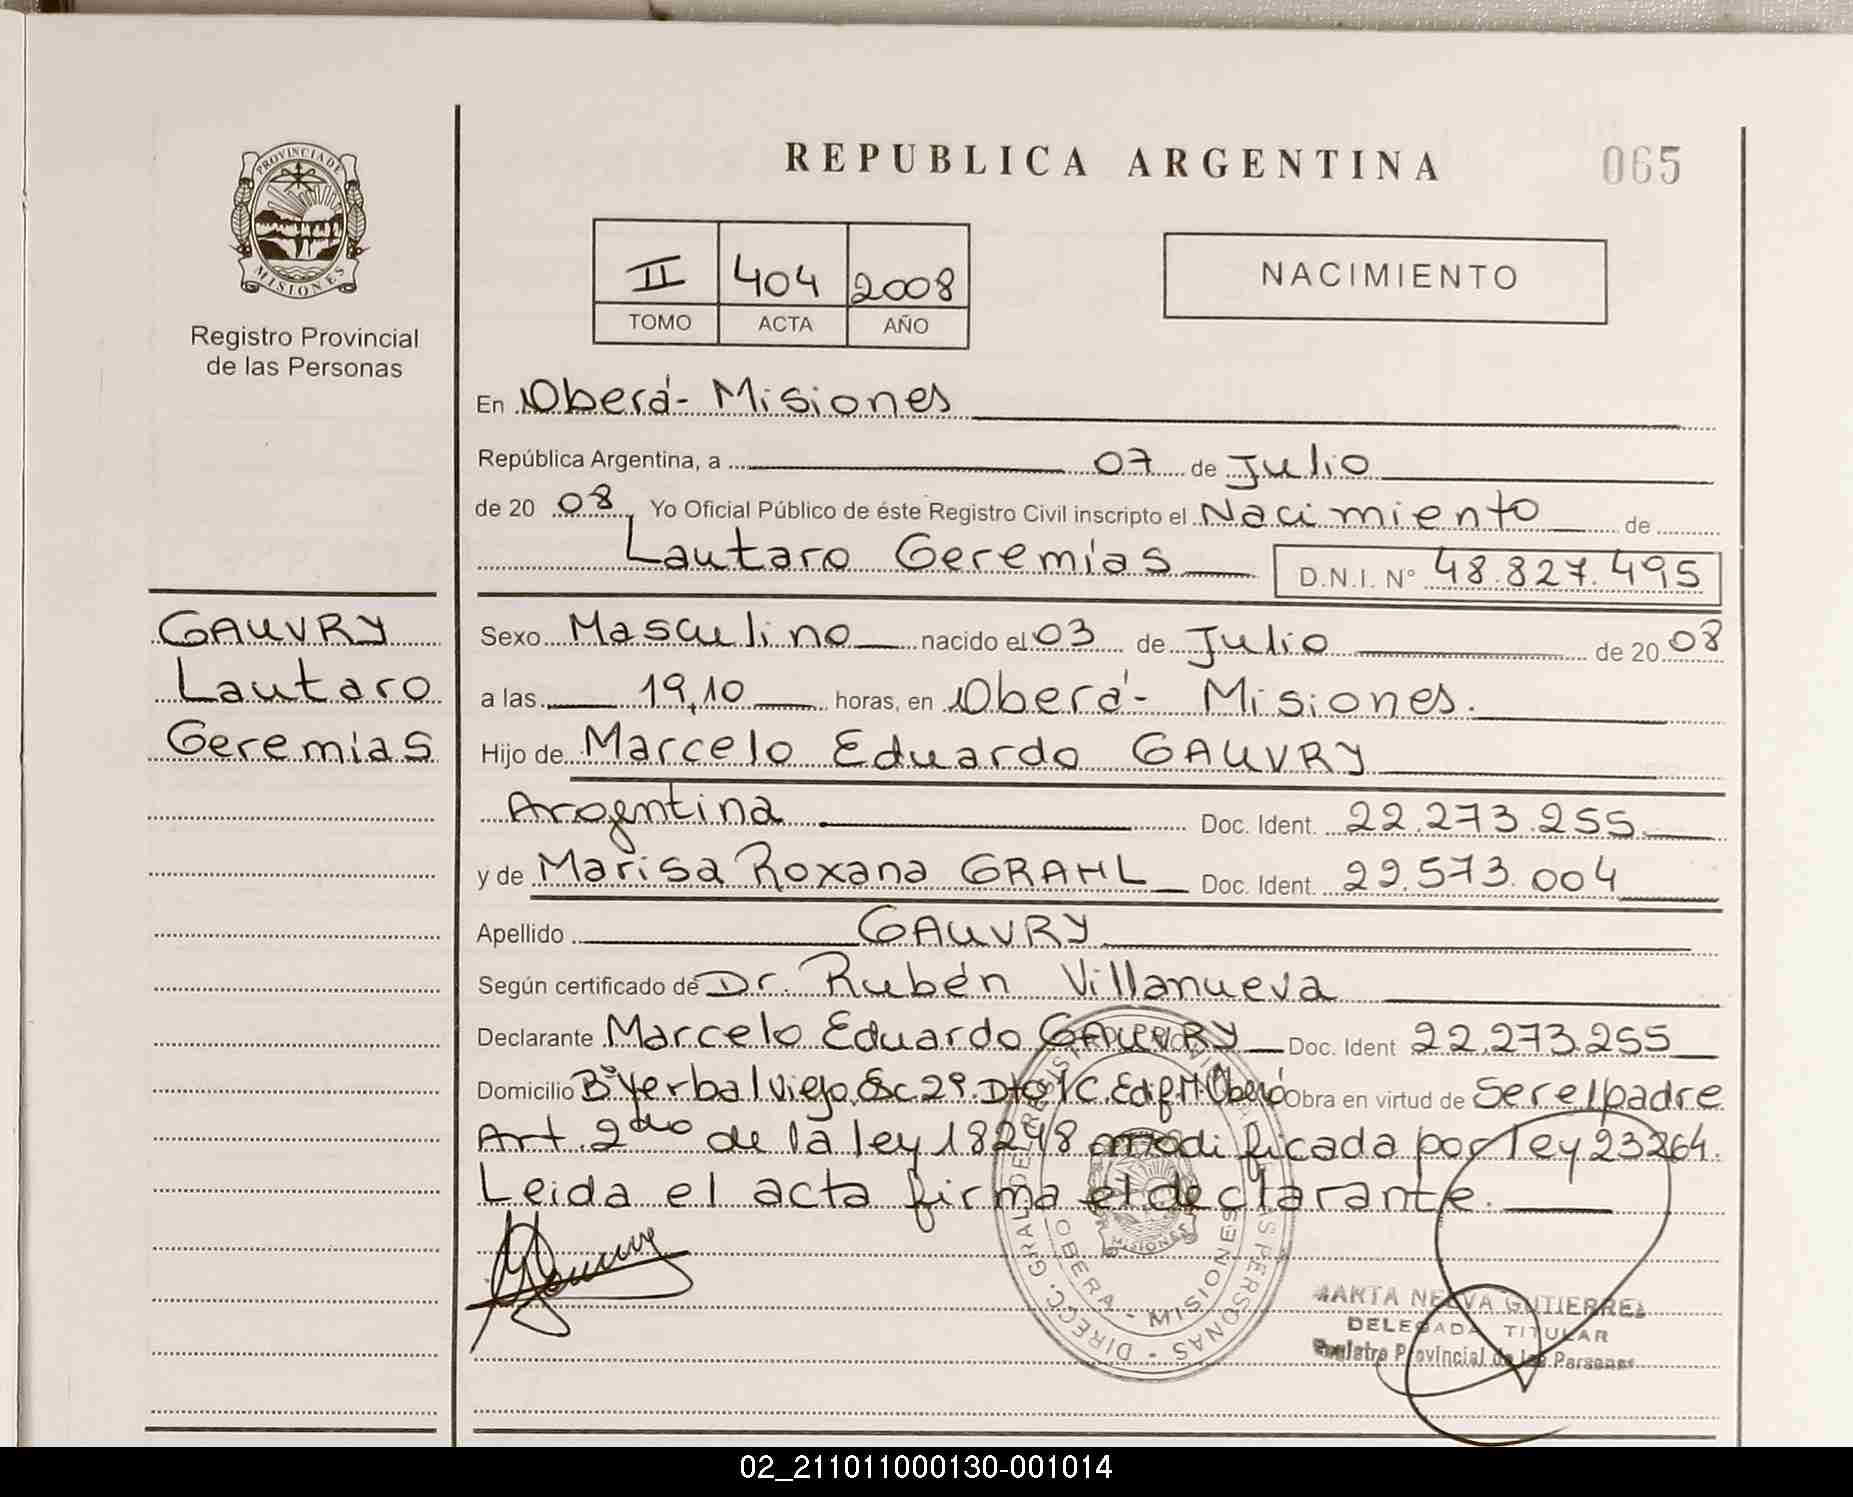 REPUBLICA ARGENTINA
065
PROVINCIA DE
MISIONES
Registro Provincial
de las Personas
II 404 2008
TOMO ACTA AÑO
NACIMIENTO
En Oberá - Misiones
República Argentina, a 07 de Julio
de 20 08, Yo Oficial Público de éste Registro Civil inscripto el Nacimiento de
Lautaro Geremías D.N.I. Nº 48.827.495
GAUVRY
Lautaro
Geremías
Sexo Masculino nacido el 03 de Julio de 20 08
a las 19,10 horas, en Oberá - Misiones.
Hijo de Marcelo Eduardo GAUVRY
Argentina Doc. Ident. 22.273.255
y de Marisa Roxana GRAHL Doc. Ident. 22.573.004
Apellido GAUVRY
Según certificado de Dr. Rubén Villanueva
Declarante Marcelo Eduardo GAUVRY Doc. Ident 22.273.255
Domicilio Bº Yerbal Viejo, Esc. 29. Dto 1C. Edif. M. Oberá Obra en virtud de Ser el padre
Art. 2do de la ley 18248 modificada por ley 23264.
Leida el acta firma el declarante.
DIRECC. GRAL. DEL REGISTRO PROVINCIAL DE LAS PERSONAS
OBERA - MISIONES
MISIONES
MARTA NELVA GUTIERREZ
DELEGADA TITULAR
Registro Provincial de las Personas
02_211011000130-001014